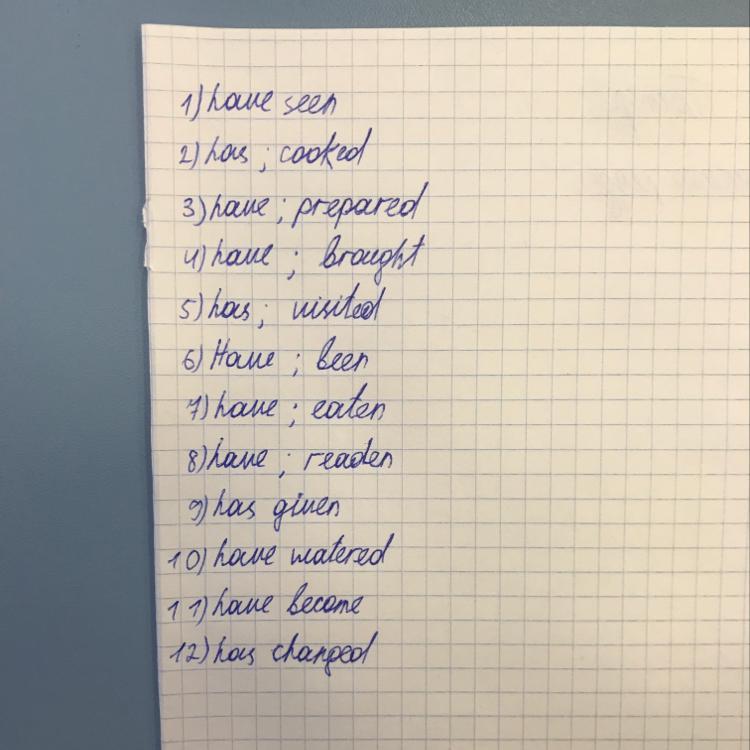 1) have seen
2) has ; cooked
3) have ; prepared
4) have ; brought
5) has ; visited
6) Have ; been
7) have ; eaten
8) have ; readen
9) has given
10) have watered
11) have become
12) has changed